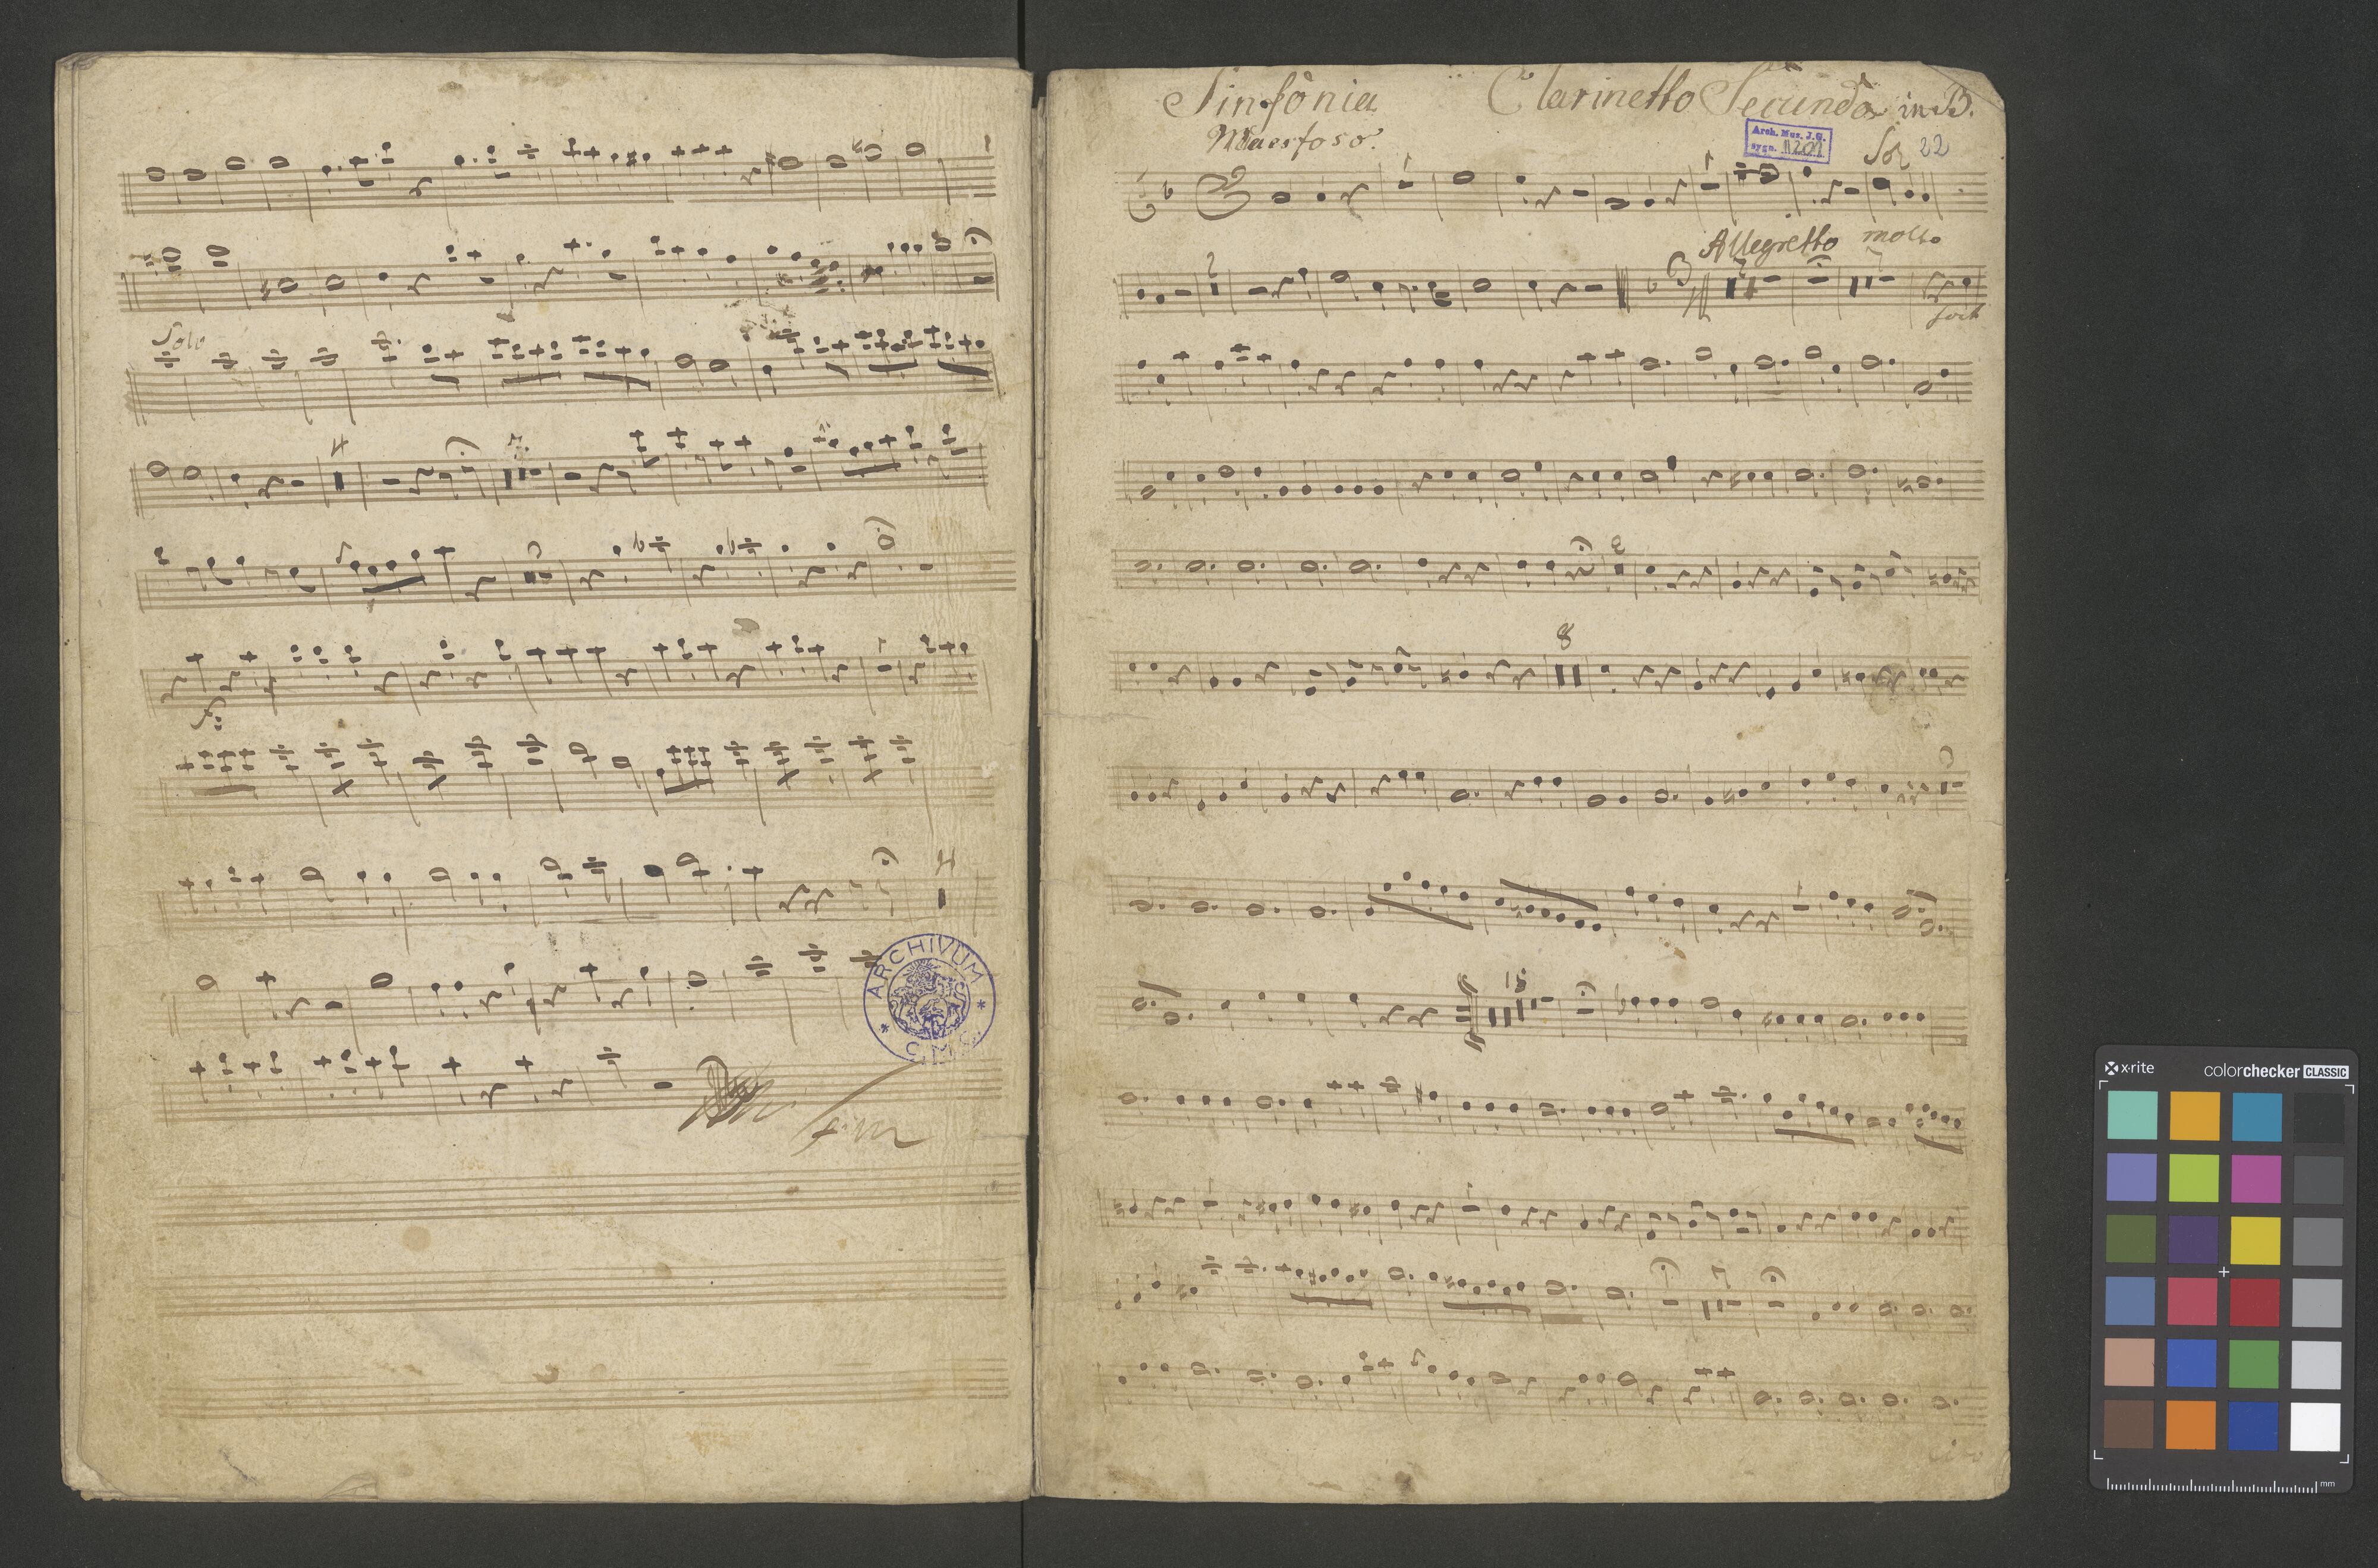 1
Solo
4
1
4
ARCHIVUM
* C.M.C. *
Fin
Sinfonia Clarinetto Secundo in B.
Maestoso.
Arch. Muz. J.G.
sygn. II 201
22
1
1
Allegretto molto
2
7
7
8
18
x·rite colorchecker CLASSIC
mm